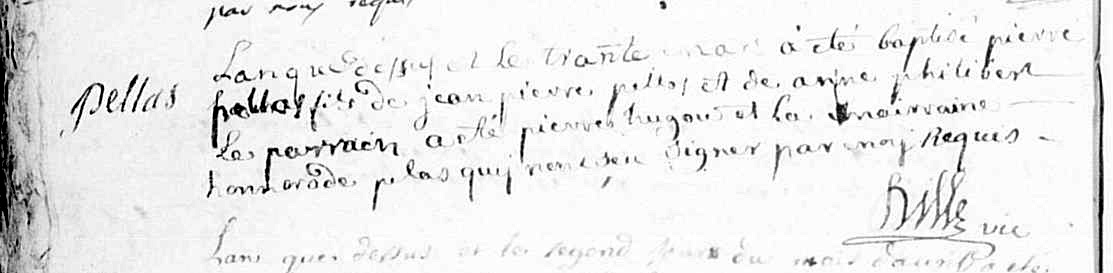 par nous requis
Lan que dessus et le trante mai a eté baptisé pierre
Pellas
pellas fils de jean pierre pellas et de anne philibert
le parrain a eté pierre hugou et la mairraine
honnorade plas quj nont seu signer par moj Requis
Rille vic
Lan que dessus et le segond jour du mois daur